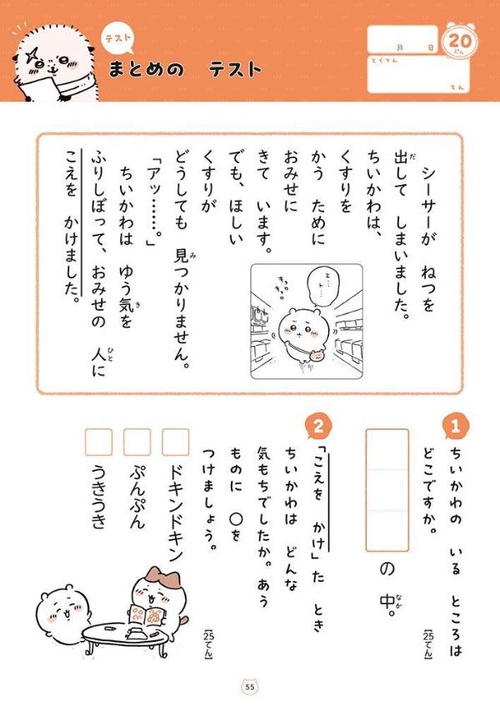 テスト
まとめの テスト
月 日
20
ぷん
とくてん
てん
シーサーが ねつを
出して しまいました。
だ
ちいかわは、
くすりを
かう ために
おみせに
きて います。
でも、ほしい
くすりが
どうしても 見つかりません。
み
「アッ……。」
ちいかわは ゆう気を
き
ふりしぼって、おみせの 人に
ひと
こえを かけました。
エ…
ト…
1
ちいかわの いる ところは
どこですか。
【25てん】
の 中。
なか
2
「こえを かけ」た とき
ちいかわは どんな
気もちでしたか。あう
ものに ○を
つけましょう。
【25てん】
ドキンドキン
ぷんぷん
うきうき
55